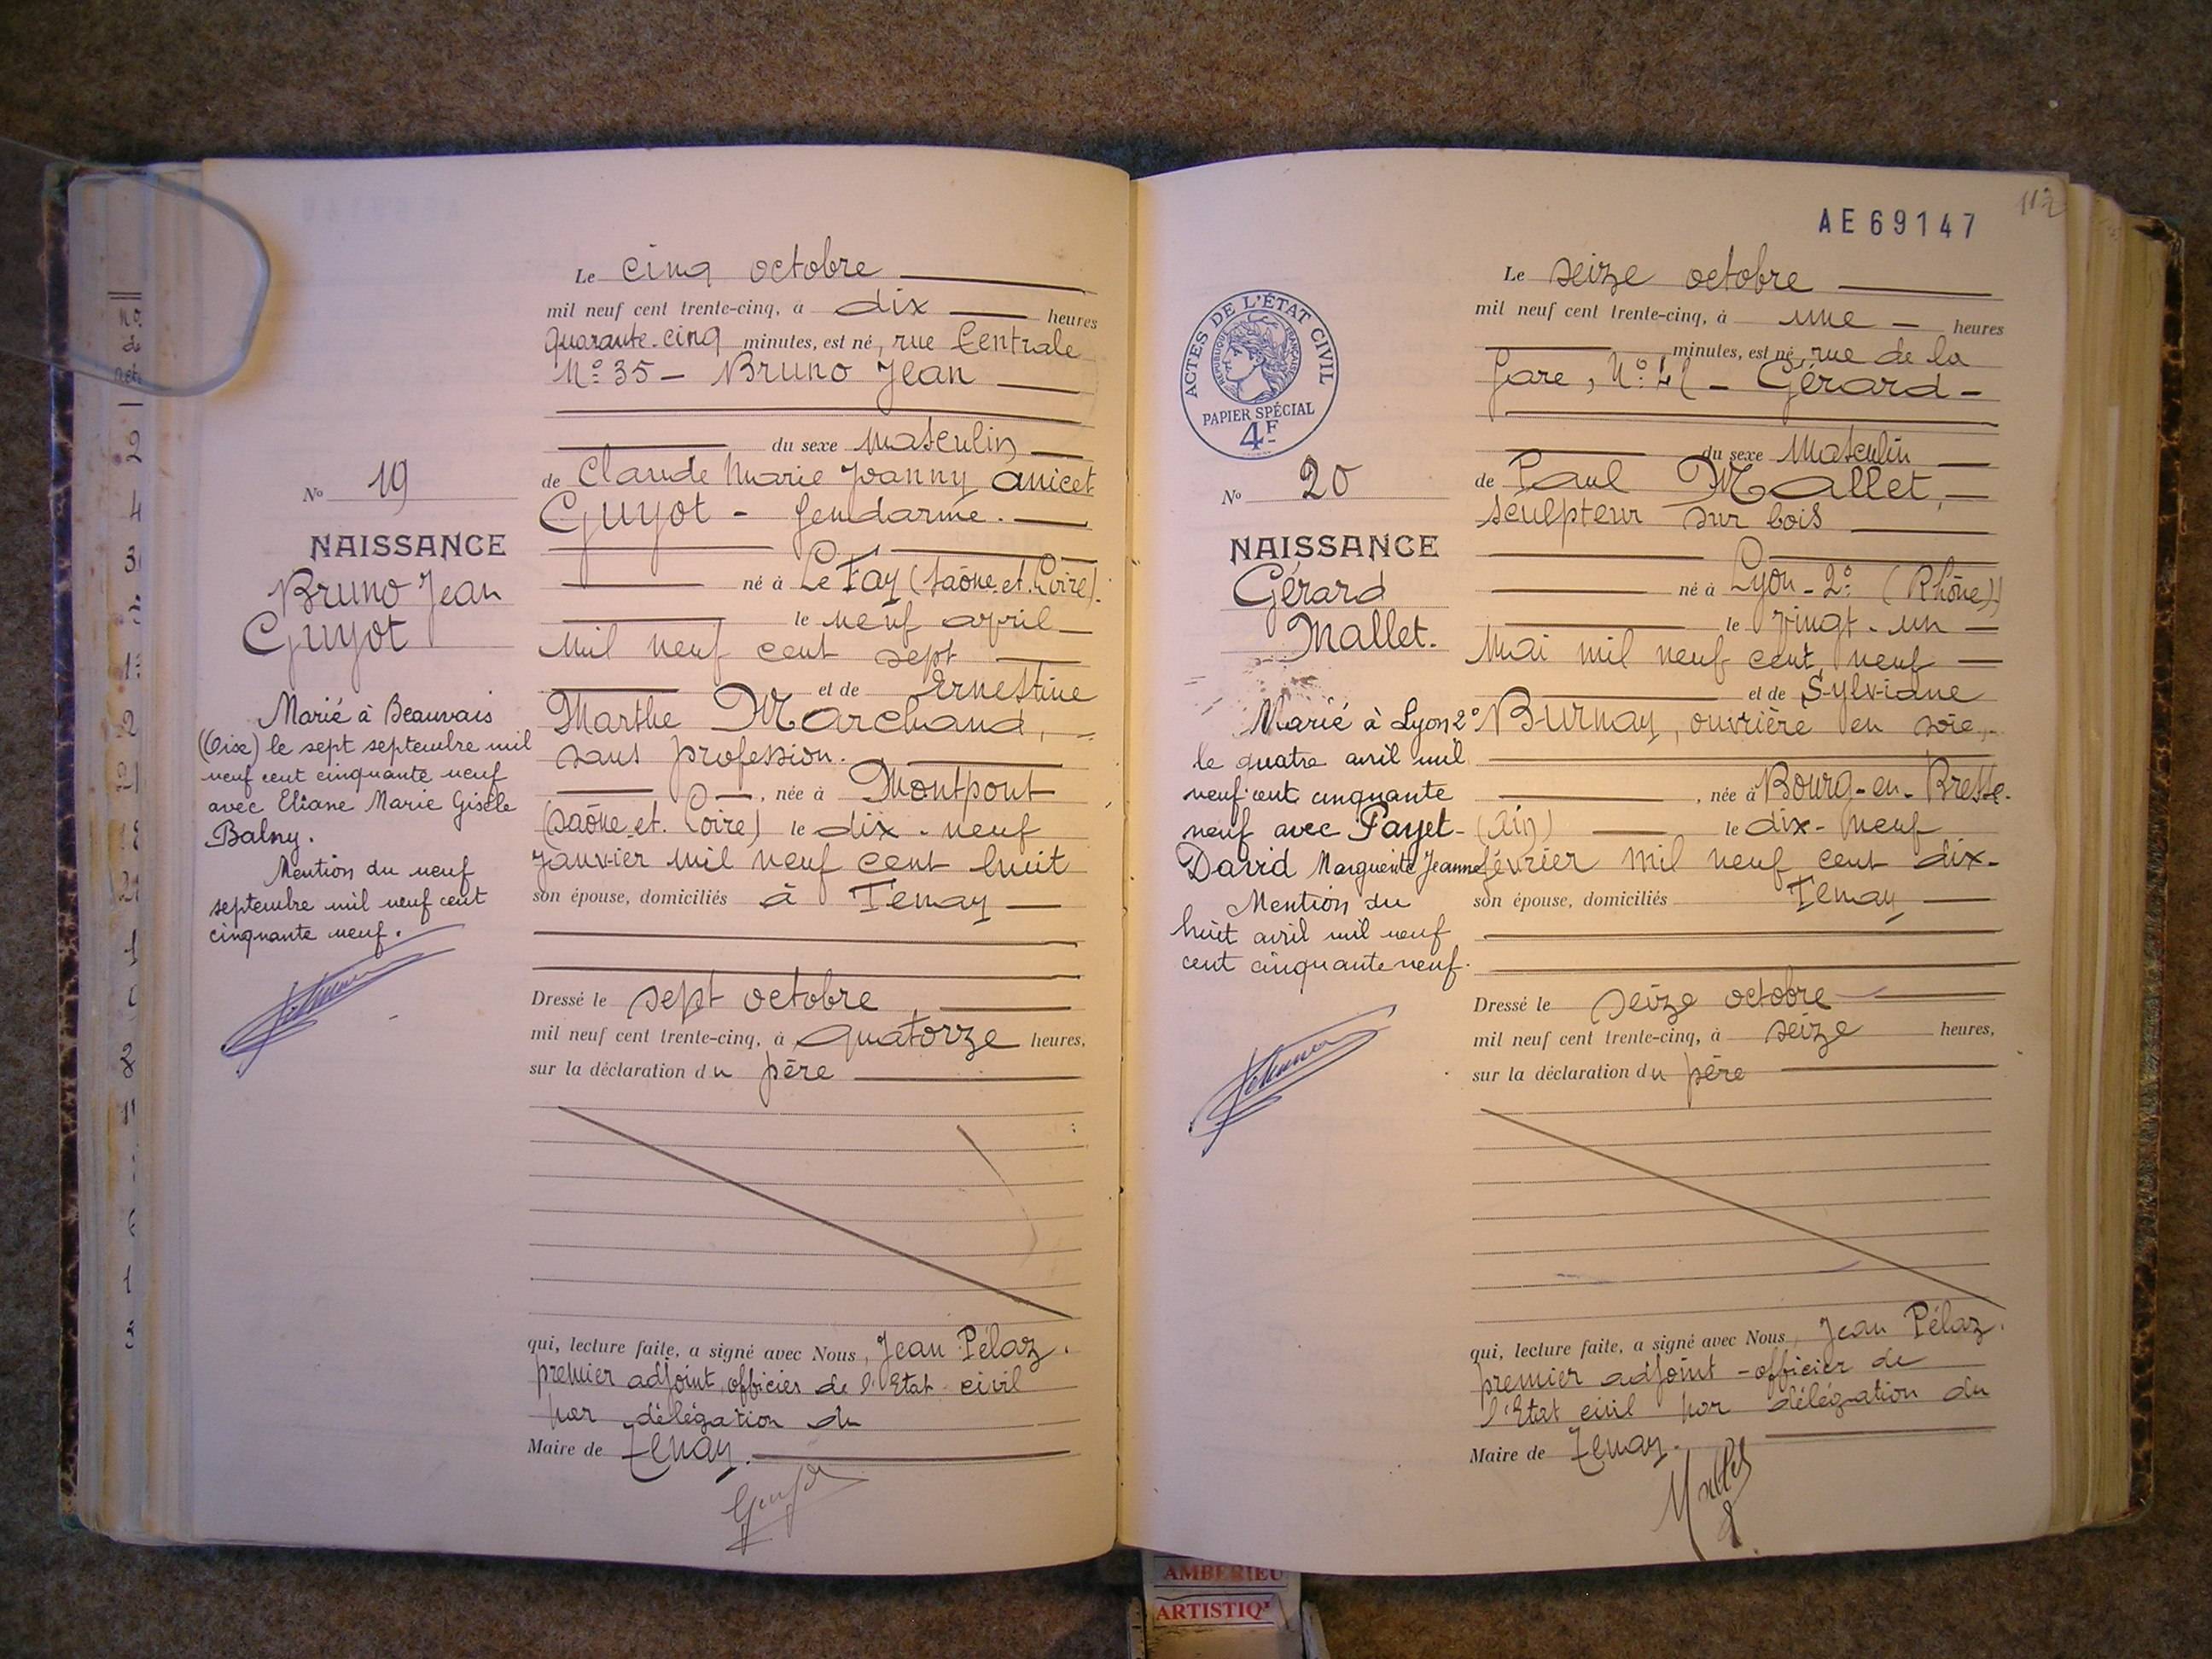 Le cinq octobre
mil neuf cent trente-cinq, à dix heures
quarante-cinq minutes, est né, rue Centrale
N° 35 - Bruno Jean
du sexe masculin
de Claude Marie Joanny Anicet
Guyot - gendarme.
né à Le Fay (Saône-et-Loire).
le neuf avril
mil neuf cent sept
et de Ernestine
Marthe Marchand,
sans profession.
, née à Montpont
(Saône-et-Loire) le dix-neuf
janvier mil neuf cent huit
son épouse, domiciliés à Tenay
Dressé le sept octobre
mil neuf cent trente-cinq, à quatorze heures,
sur la déclaration du père
qui, lecture faite, a signé avec Nous, Jean Pélaz,
premier adjoint, officier de l'Etat civil
par délégation du
Maire de Tenay.
Guyot
N° 19
NAISSANCE
Bruno Jean
Guyot
Marié à Beauvais
(Oise) le sept septembre mil
neuf cent cinquante neuf
avec Eliane Marie Gisèle
Balny.
Mention du neuf
septembre mil neuf cent
cinquante neuf.
112
AE69147
Le seize octobre
mil neuf cent trente-cinq, à une heures
minutes, est né, rue de la
Gare, N° - Gérard -
du sexe Masculin
de Paul Mallet,
sculpteur sur bois
né à Lyon-2° (Rhône)
le vingt-un
Mai mil neuf cent neuf
et de Sylviane
Burnay, ouvrière en soie,
, née à Bourg-en-Bresse
(Ain) le dix-neuf
février mil neuf cent dix-
son épouse, domiciliés Tenay
Dressé le seize octobre
mil neuf cent trente-cinq, à seize heures,
sur la déclaration du père
qui, lecture faite, a signé avec Nous, Jean Pélaz,
premier adjoint - officier de
l'Etat civil par délégation du
Maire de Tenay.
Mallet
ACTES DE L'ÉTAT CIVIL
RÉPUBLIQUE FRANÇAISE
PAPIER SPÉCIAL
4F
N° 20
NAISSANCE
Gérard
Mallet.
Marié à Lyon 2°
le quatre avril mil
neuf cent cinquante
neuf avec Payet-
David Marguerite Jeanne
Mention du
huit avril mil neuf
cent cinquante neuf.
AMBERIEU
ARTISTIQ